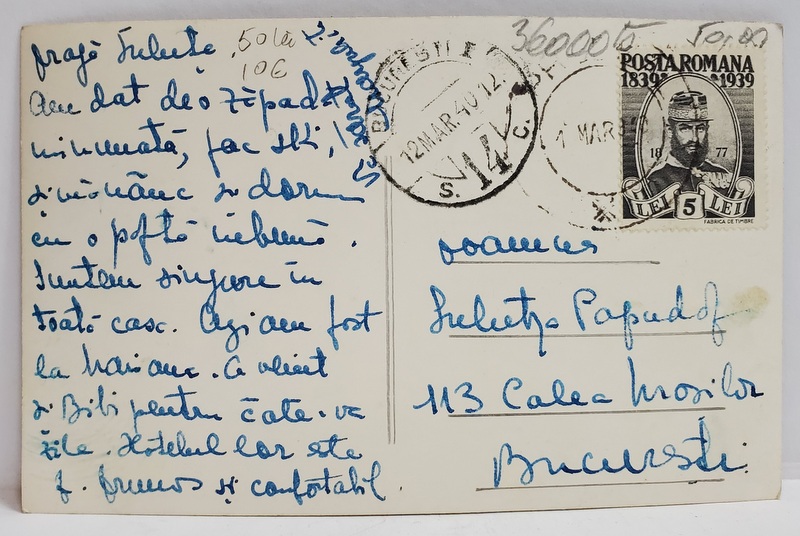 Dragă Lulutza
Am dat de o zăpadă
minunată, fac ski,
și mănânc și dorm
cu o poftă nebună.
Suntem singure în
toată casa. Azi am fost
la Mariana. A venit
și Bibi pentru câte-va
zile. Hotelul lor este
f. frumos și confortabil.
50 lei
10€
36000
BUCUREȘTI
12 MAR. 40. 12
S. 14 C.
MAR
POSTA ROMANA
1839 1939
18 77
LEI 5 LEI
FABRICA DE TIMBRE
Doamnei
Lulutza Papudof
113 Calea Moșilor
București.